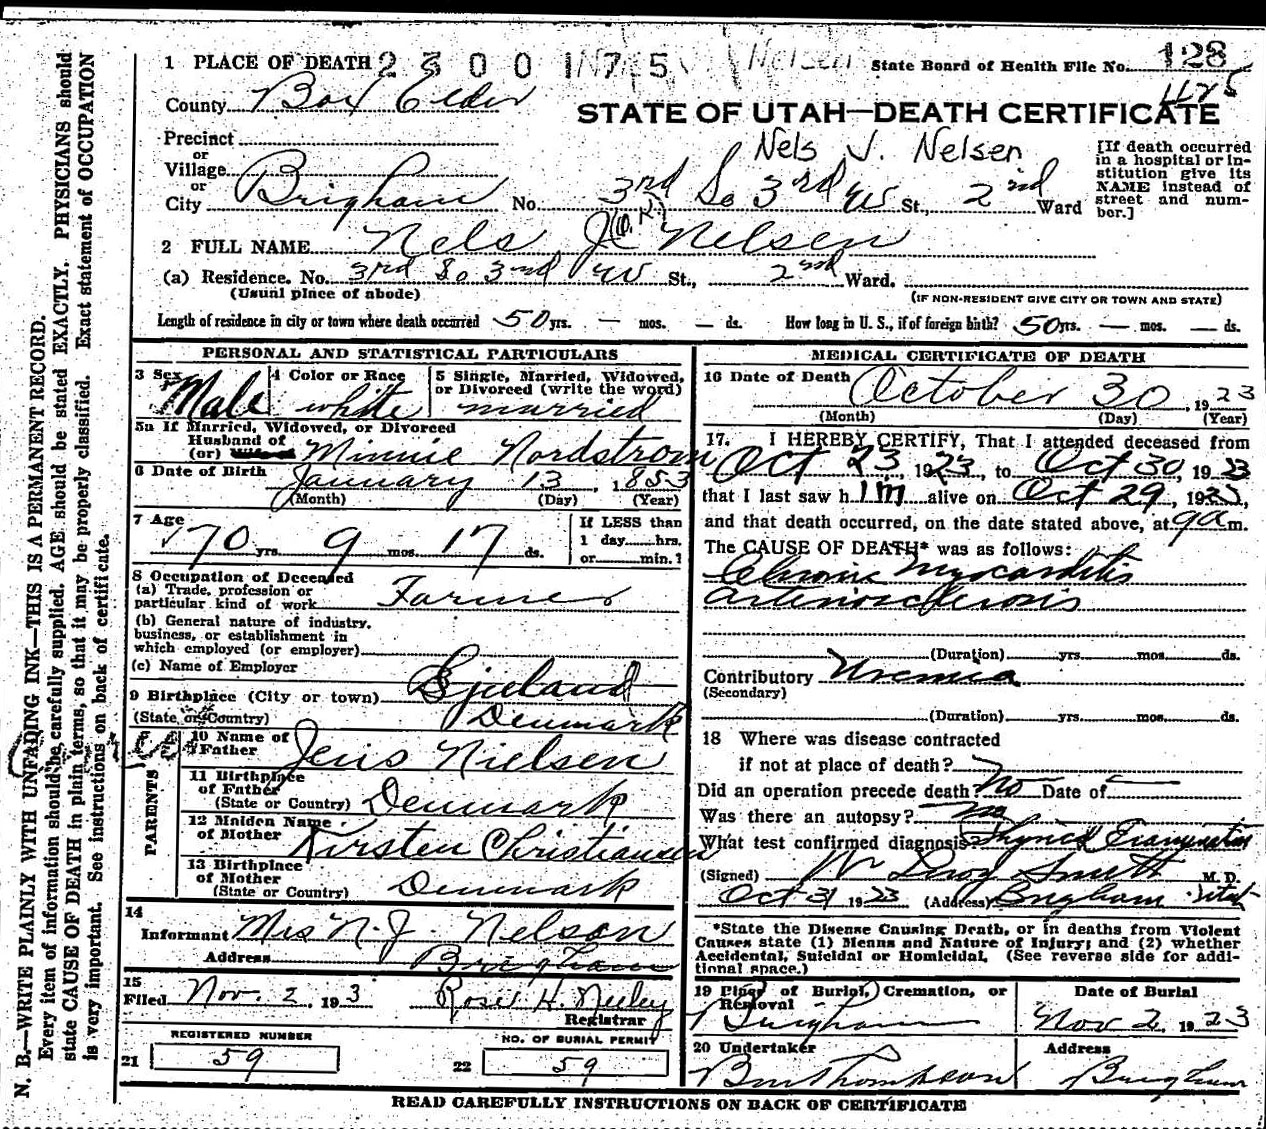 1 PLACE OF DEATH 2300175 Nelsen State Board of Health File No. 128
1125
County Box Elder
STATE OF UTAH—DEATH CERTIFICATE
Precinct
or
Village
or
City Brigham No. 3rd So 3rd W St., 2nd Ward
Nels J. Nelsen
[If death occurred
in a hospital or in-
stitution give its
NAME instead of
street and num-
ber.]
2 FULL NAME Nels J (O.K.) Nelsen
(a) Residence. No. 3rd So 3nd W St., 2nd Ward.
(Usual place of abode) (IF NON-RESIDENT GIVE CITY OR TOWN AND STATE)
Length of residence in city or town where death occurred 50 yrs. — mos. — ds. How long in U. S., if of foreign birth? 50 yrs. — mos. — ds.
PERSONAL AND STATISTICAL PARTICULARS
3 Sex Male
4 Color or Race white
5 Single, Married, Widowed,
or Divorced (write the word)
married
5a If Married, Widowed, or Divorced
Husband of
(or) Minnie Nordstrom
6 Date of Birth January 13, 1853
(Month) (Day) (Year)
7 Age 70 yrs. 9 mos. 17 ds.
If LESS than
1 day hrs.
or min.?
8 Occupation of Deceased
(a) Trade, profession or
particular kind of work Farmer
(b) General nature of industry,
business, or establishment in
which employed (or employer)
(c) Name of Employer
9 Birthplace (City or town)
(State or Country) Denmark
PARENTS
10 Name of
Father Jens Nielsen
11 Birthplace
of Father
(State or Country) Denmark
12 Maiden Name
of Mother Kirsten Christiansen
13 Birthplace
of Mother
(State or Country) Denmark
14
Informant Mrs N. J. Nelson
Address Brigham
15
Filed Nov. 2, 1923 Rose H. Neeley
Registrar
REGISTERED NUMBER
21 59
NO. OF BURIAL PERMIT
22 59
MEDICAL CERTIFICATE OF DEATH
16 Date of Death October 30, 1923
(Month) (Day) (Year)
17. I HEREBY CERTIFY, That I attended deceased from
Oct 23 1923, to Oct 30, 1923
that I last saw h im alive on Oct 29, 1923,
and that death occurred, on the date stated above, at 9 a m.
The CAUSE OF DEATH* was as follows:
Chronic myocarditis
arteriosclerosis
(Duration) yrs. mos. ds.
Contributory Uremia
(Secondary)
(Duration) yrs. mos. ds.
18 Where was disease contracted
if not at place of death?
Did an operation precede death? No Date of —
Was there an autopsy? no
What test confirmed diagnosis? Physical Examination
(Signed) W Leroy Smith M. D.
Oct 31 1923 (Address) Brigham Utah
*State the Disease Causing Death, or in deaths from Violent
Causes state (1) Means and Nature of Injury; and (2) whether
Accidental, Suicidal or Homicidal. (See reverse side for addi-
tional space.)
19 Place of Burial, Cremation, or
Removal
Brigham
Date of Burial
Nov 2, 1923
20 Undertaker
Address
Brigham
READ CAREFULLY INSTRUCTIONS ON BACK OF CERTIFICATE
N. B.—WRITE PLAINLY WITH UNFADING INK—THIS IS A PERMANENT RECORD.
Every item of information should be carefully supplied. AGE should be stated EXACTLY. PHYSICIANS should
state CAUSE OF DEATH in plain terms, so that it may be properly classified. Exact statement of OCCUPATION
is very important. See instructions on back of certificate.